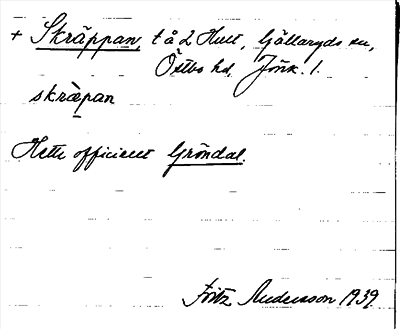 + Skräppan, t å 2 Hult, Gällaryds sn,
Östbo hd, Jönk. l.
skræpan
Hette officiellt Gröndal.
Fritz Andersson 1939